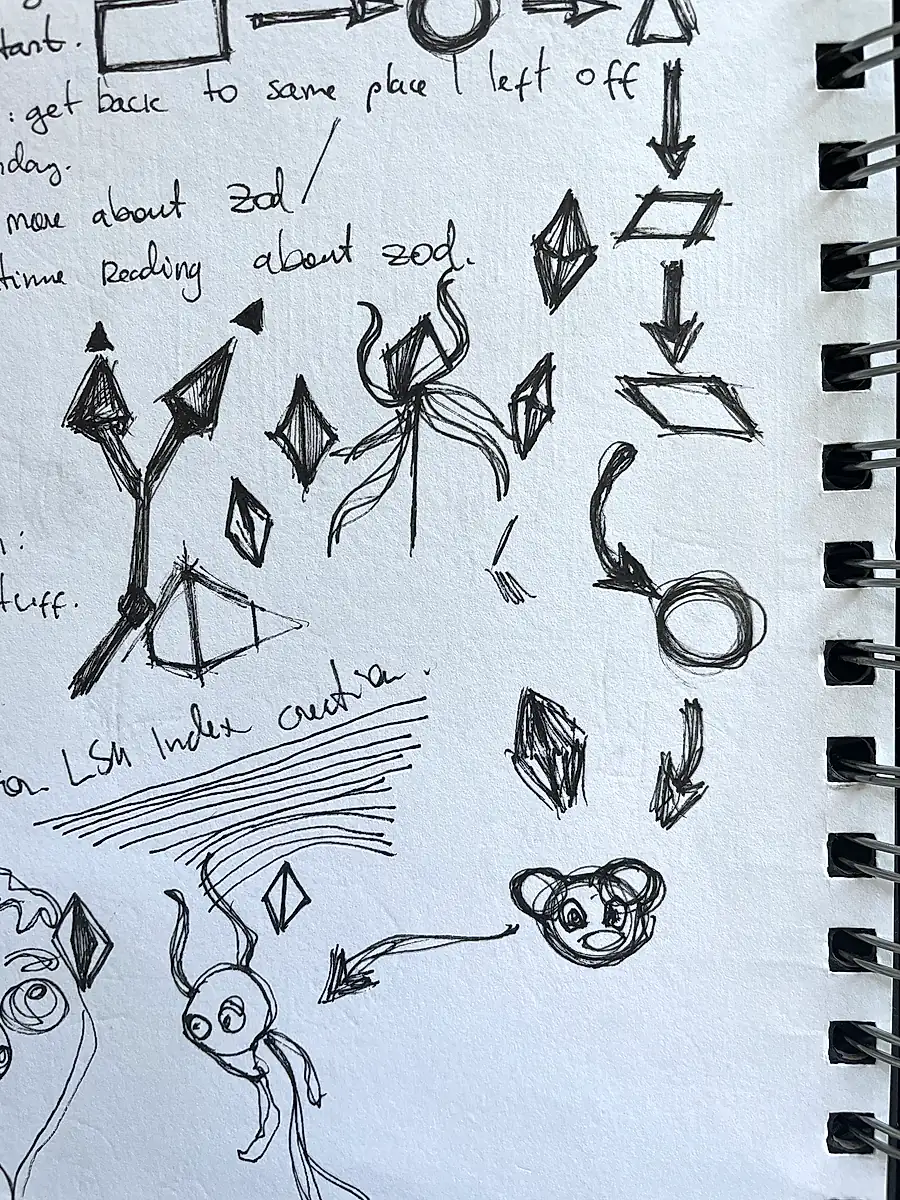 tant.
: get back to same place I left off
nday.
more about zod/
tinue Reading about zod.
n:
tuff.
LSH Index creation.